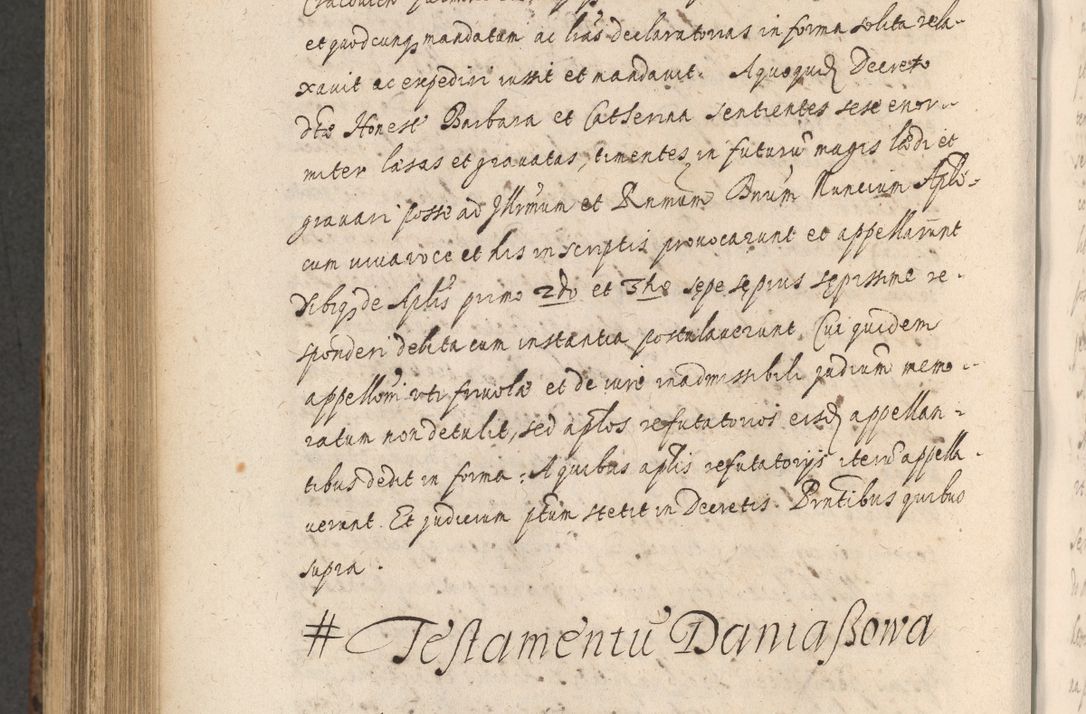 et quodcunq mandatum ac lras declaratorias in forma solita rela-
xavit ac expediri iussit et mandavit. A quoquid Decreto
dtæ Honest Barbara et Catherina sentientes sese enor-
miter læsas et gravatas, timentes in futurū magis lædi et
gravari posse ad Jllrmum et Rndmum Dnum Nuncium Aplo-
cum viva voce et his in scriptis provocarunt et appellarunt
Sibiq de Aplis primo 2do et 3tio sępe sępius sępissime re-
sponderi debita cum instantia postulaverunt. Cui quidem
appellōni uti frivolæ et de iure inadmissibili judicium memo-
ratum non detulit, sed aplos refutatorios eisd appellan-
tibus dedit in forma: A quibus aplis refutatorijs iterū appella-
verunt. Et judicium ptum stetit in Decretis. Prntibus quibus
supra.
# Testamentū Daniaßowa